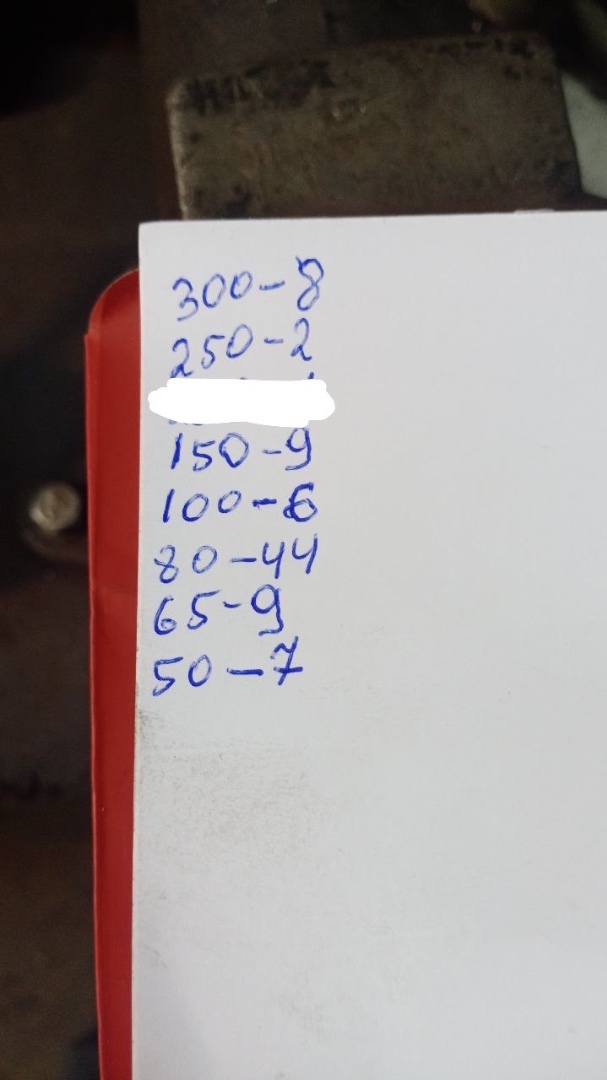 300-8
250-2
150-9
100-6
80-44
65-9
50-7